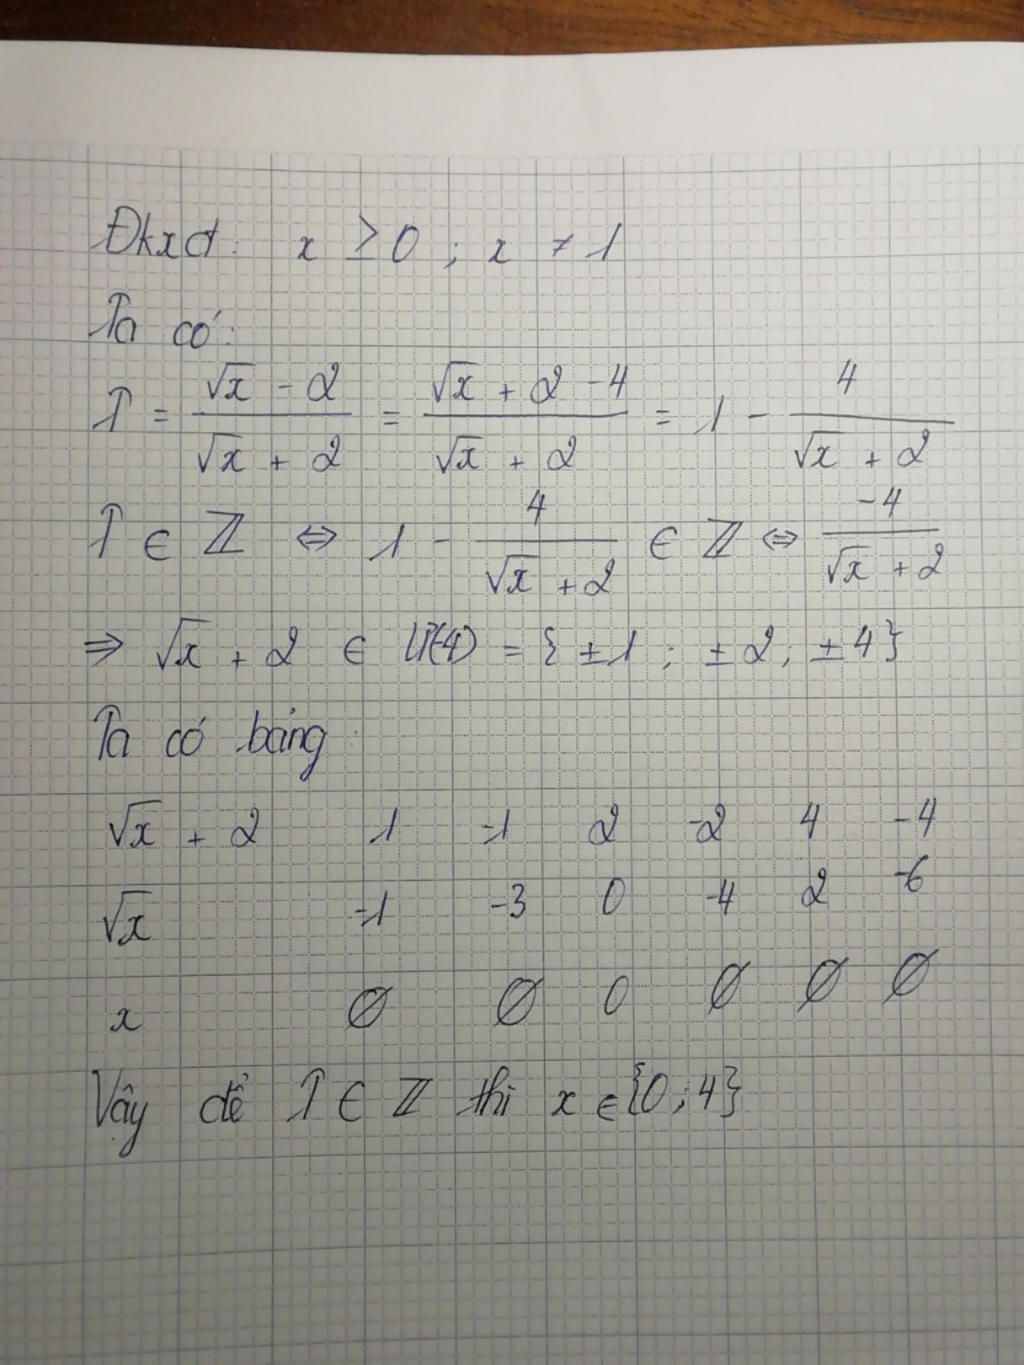 Đkxđ: x ≥ 0 ; x ≠ 1
Ta có:
P = (√x - 2)/(√x + 2) = (√x + 2 - 4)/(√x + 2) = 1 - 4/(√x + 2)
P ∈ ℤ ⇔ 1 - 4/(√x + 2) ∈ ℤ ⇔ -4/(√x + 2)
⇒ √x + 2 ∈ Ư(-4) = {±1 ; ±2; ±4}
Ta có bảng:
√x + 2 1 -1 2 -2 4 -4
√x -1 -3 0 -4 2 -6
x ∅ ∅ 0 ∅ ∅ ∅
Vậy để P ∈ ℤ thì x ∈ {0 ; 4}